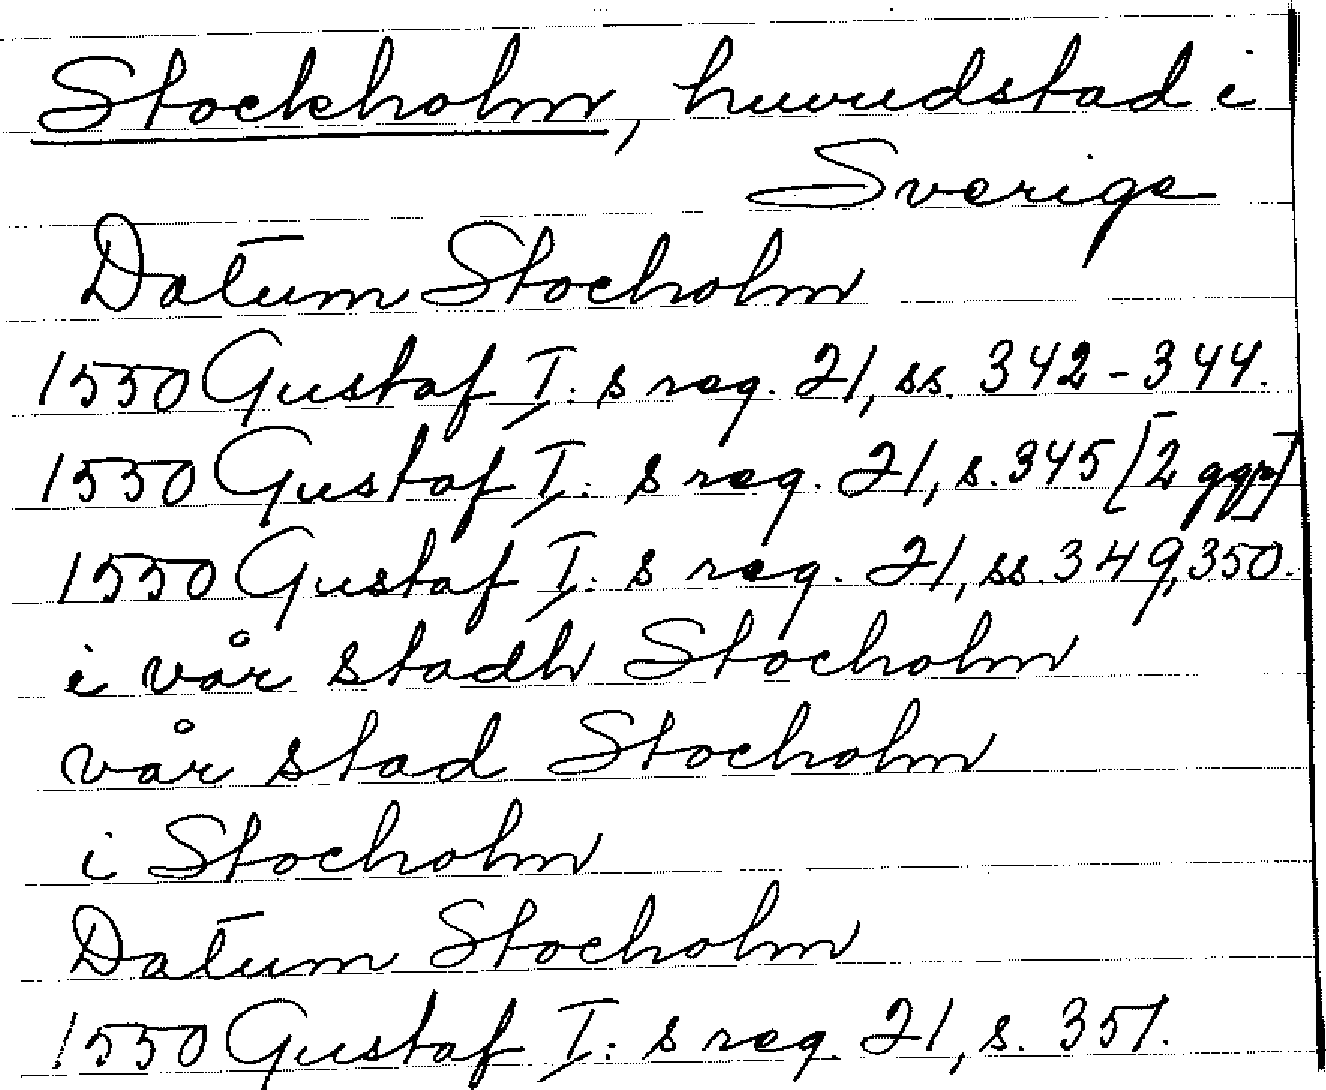 Stockholm, huvudstad i
Sverige
Datum Stocholm
1550 Gustaf I: s reg. 21, ss. 342-344.
1550 Gustaf I: s reg. 21, s. 345 [2 ggr]
1550 Gustaf I: s reg. 21, ss. 349, 350.
i vår stadh Stocholm
vår stad Stocholm
i Stocholm
Datum Stocholm
1550 Gustaf I: s reg 21, s. 351.